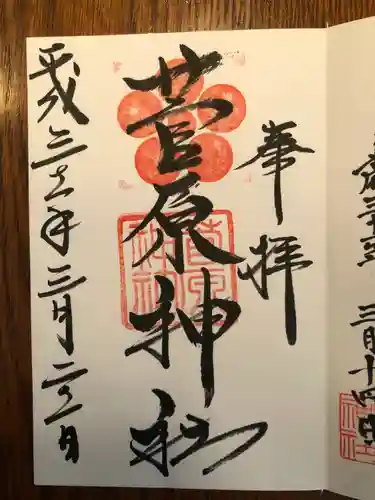 奉拝
菅原神社
菅原神社
平成三十一年三月二十二日
三月十四日